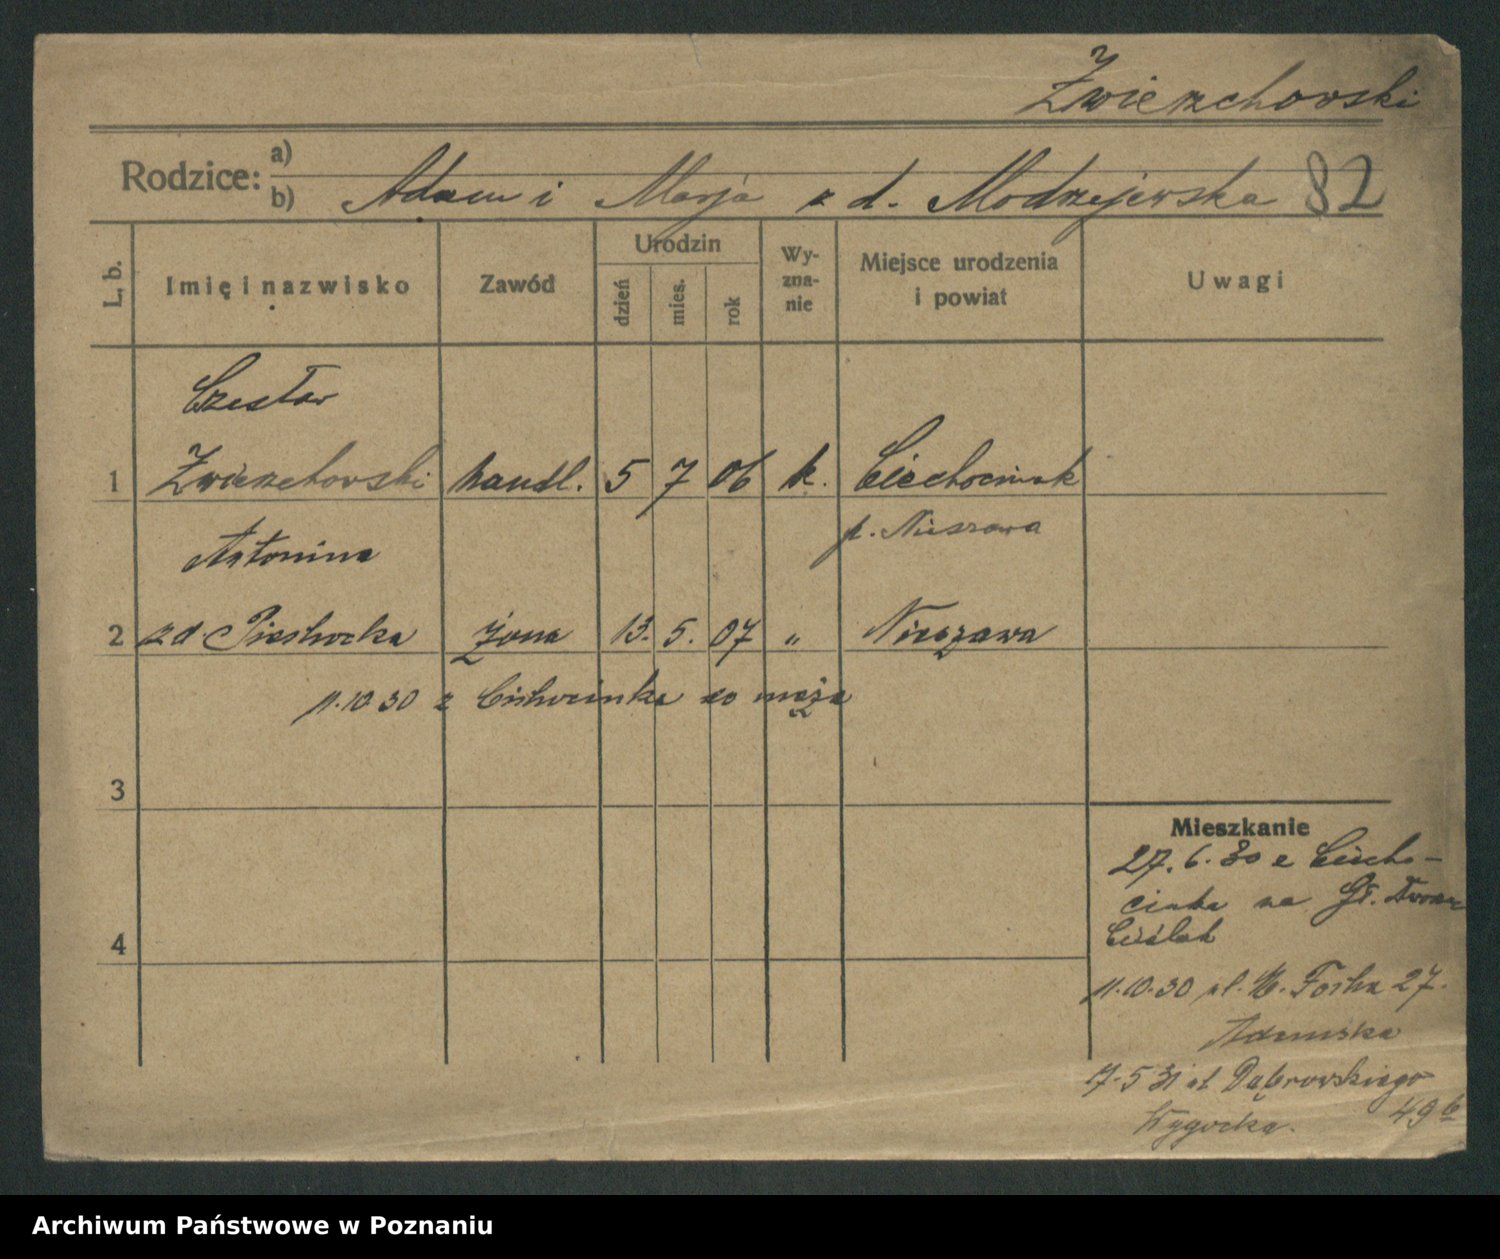 Zwierzchowski
Rodzice: a)
b) Adam i Marja z d. Modrzejewska 82
L. b. Imię i nazwisko Zawód Urodzin dzień mies. rok Wyznanie Miejsce urodzenia i powiat Uwagi
Czesław
1 Zwierzchowski handl. 5 7 06 k. Ciechocinek
p. Nieszawa
Antonina
2 z d. Piechocka żona 13. 5. 07 " Nieszawa
11.10.30 z Ciechocinka do męża
3
Mieszkanie
27.6.30 z Ciecho-
cinka na Gł.
4 Cieślak
11.10.30 ul. M. Focha 27.
Adamska
7.5 31 ul Dąbrowskiego
49
Wygocka.
Archiwum Państwowe w Poznaniu